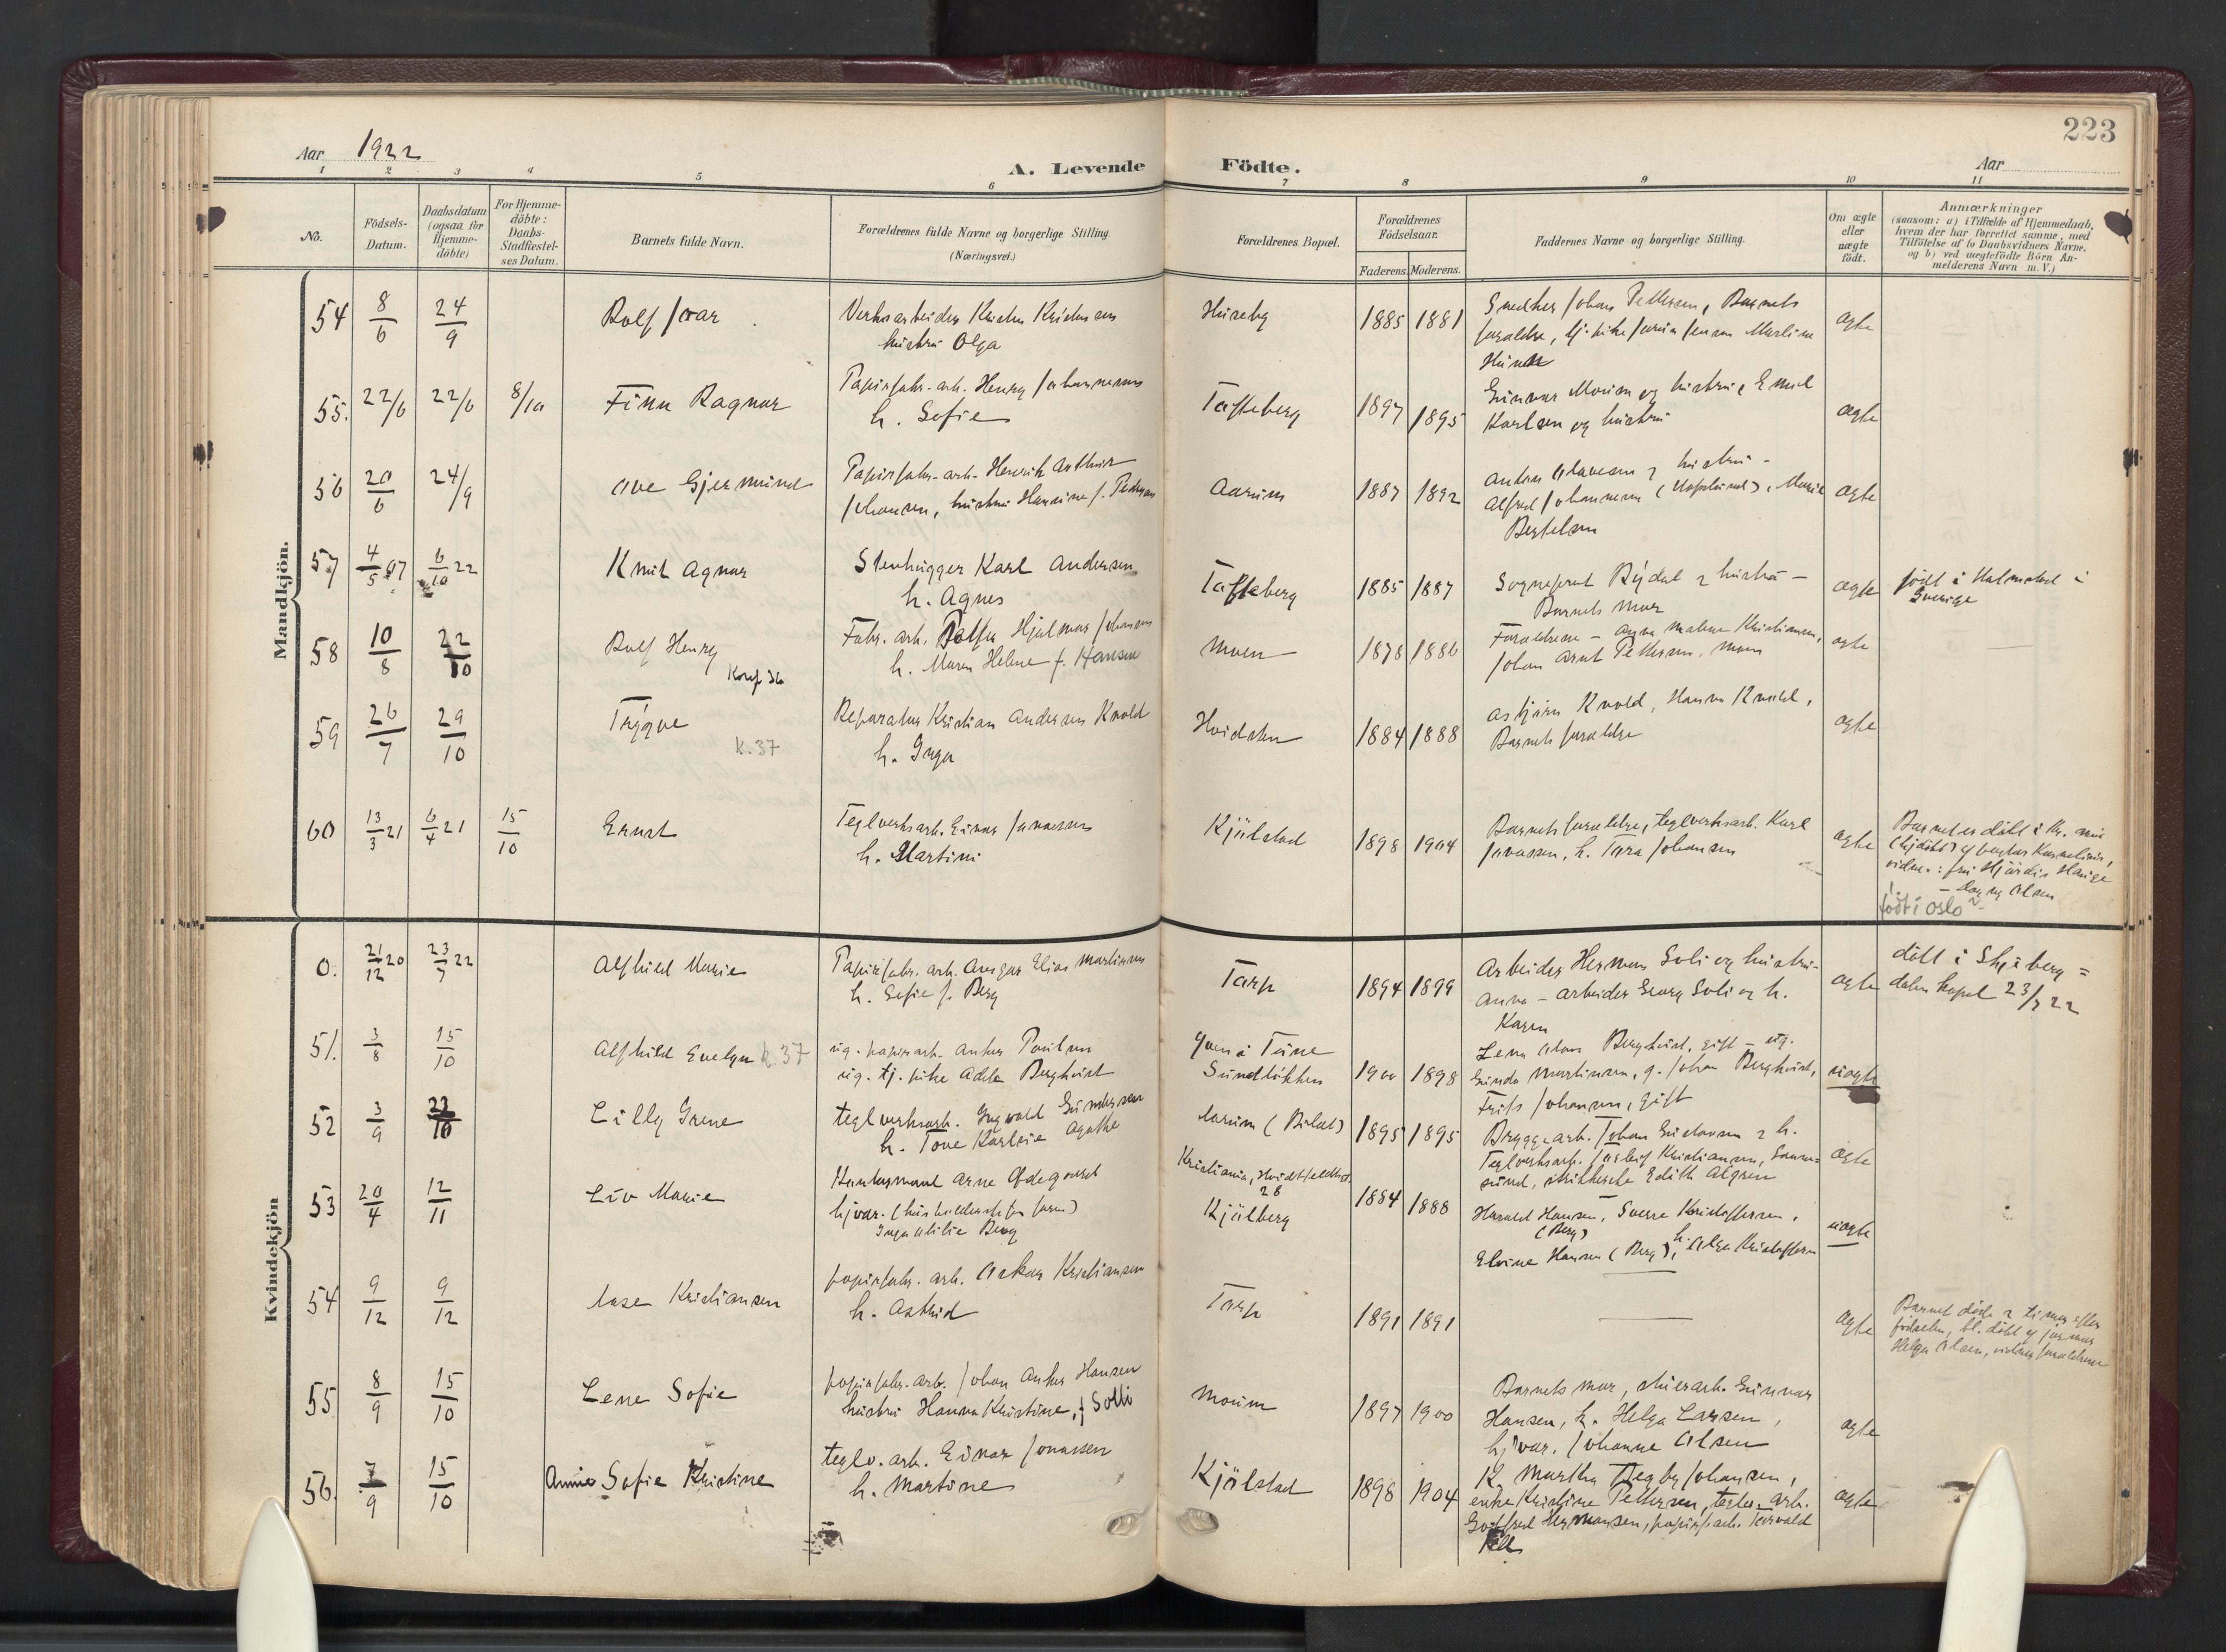 223
Aar 1922
A. Levende Födte.
Aar
1 2 3 4 5 6 7 8 9 10 11
No.
Födsels-
Datum.
Daabsdatum
(ogsaa for
Hjemme-
döbte)
For Hjemme-
döbte:
Daabs-
Stadfæstel-
ses Datum.
Barnets fulde Navn.
Forældrenes fulde Navne og borgerlige Stilling.
(Næringsvei.)
Forældrenes Bopæl.
Forældrenes
Födselsaar.
Faderens. Moderens.
Faddernes Navne og borgerlige Stilling.
Om ægte
eller
uægte
födt.
Anmærkninger
(saasom: a) i Tilfælde af Hjemmedaab,
hvem der har forrettet samme, med
Tilföielse af to Daabsvidners Navne,
og b) ved uægtefödte Börn An-
melderens Navn m. V.)
Mandkjön.
54 8/6 24/9 Rolf Ivar
Verksarbeider
hustru Olga
Huseby 1885 1881
Snedker Johan Pettersen, Barnets
forældre,
ægte
55. 22/6 22/6 8/10 Finn Ragnar
Papirfabr. arb. Henry Johannesen
h. Sofie
Tasteberg 1897 1895
Gunnar Moum og hustru, Emil
Karlsen og hustru
ægte
56 20/6 24/9 Ove Gjermund
Papirfabr. arb. Henrik Arthur
Johansen, hustru Hansine f. Pedersen
Aarum 1887 1892
Anton Olavesen & hustru -
Alfred Johannesen, Marie
Bertelsen
ægte
57 4/5 07 6/10 22 Knut Agnar
Stenhugger Karl Andersen
h. Agnes
Tasteberg 1885 1887
Sogneprest Rydal & hustru -
Barnets mor
ægte
født i Halmstad i
Sverige
58 10/8 22/10 Rolf Henry
Konf 36
Fabr. arb. Hjalmar Johansen
h. Maren Helene f. Hansen
Moen 1878 1886
Forældrene - Anna Malene Kristiansen,
Johan Arnt Pettersen, Moen
ægte
59 26/7 29/10 Trygve
K. 37
Reparatør Kristian Andersen Knold
h. Inga
Hvidsten 1884 1888
Asbjørn Knold, Hanna Knold,
Barnets forældre
ægte
60 13/3 21 6/4 21 15/10 Ernst
Teglverksarb. Einar Jonassen
h. Martine
Kjølstad 1898 1904
Barnets forældre, teglverksarb. Karl
Jonassen, h. Tora Johansen
ægte
Barnet er døbt i Kr.ania
(hjdøbt) af
vidne: fru Hjørdis Hauge
- Dagny Olsen
født i Oslo
Kvindekjön
0. 21/12 20 23/7 22 Alfhild Marie
Papirfabr. arb. Ansgar Elias Martinsen
h. Sofie f. Berg
Torp 1894 1899
Arbeider Herman Soli og hustru -
Anna - arbeider Georg Soli og h.
Karen
ægte
døbt i Skjeberg =
dalen kapel 23/7 22
51. 3/8 15/10 Alfhild Evelyn K. 37
ug. papirarb. Anker Paulsen
ug. tj. pike Adele Bergkvist
Gren i Tune
Sundløkken 1900 1898
Lena Olava Bergkvist, gift - ug.
Gunda Martinsen, g. Johan Bergkvist,
Frits Johansen, gift
uægte
52 3/9 22/10 Lilly Irene
teglverksarb. Ingvald Gundersen
h. Tove Karlsie Agathe
Aarum 1895 1895
Bryggearb. Johan Gustavsen & h.
Teglverksarb. Kristiansen,
Edith Algren
ægte
53 20/4 12/11 Liv Marie
Arne Ødegaard
hjvar.
Inga Otilie Berg
Kristiania,
28
Kjølberg 1884 1888
Harald Hansen, Sverre Kristoffersen,
(Berg)
Elvine Hansen (Berg), h. Olga Kristoffersen
uægte
54 9/12 9/12 Aase Kristiansen
papirfabr. arb. Oskar Kristiansen
h. Astrid
Torp 1891 1891
ægte
Barnet døde 2 timer efter
fødselen, bl. døbt af jormor
Helga Olsen, vidner forældrene
55 8/9 15/10 Lene Sofie
papirfabr. arb. Johan Anker Hansen
hustru Hanna Kristine, f Solli
Moum 1897 1900
Barnets mor, Gunnar
Hansen, h. Helga Larsen,
hjvar. Johanne Olsen
ægte
56. 7/9 15/10 Annie Sofie Kristine
teglv. arb. Einar Jonassen
h. Martine
Kjølstad 1898 1904
K. Martha Degby Johansen,
enke Kristine Pettersen, teglv. arb.
Gotfred Hermansen, papirf. arb. Torvald
ægte